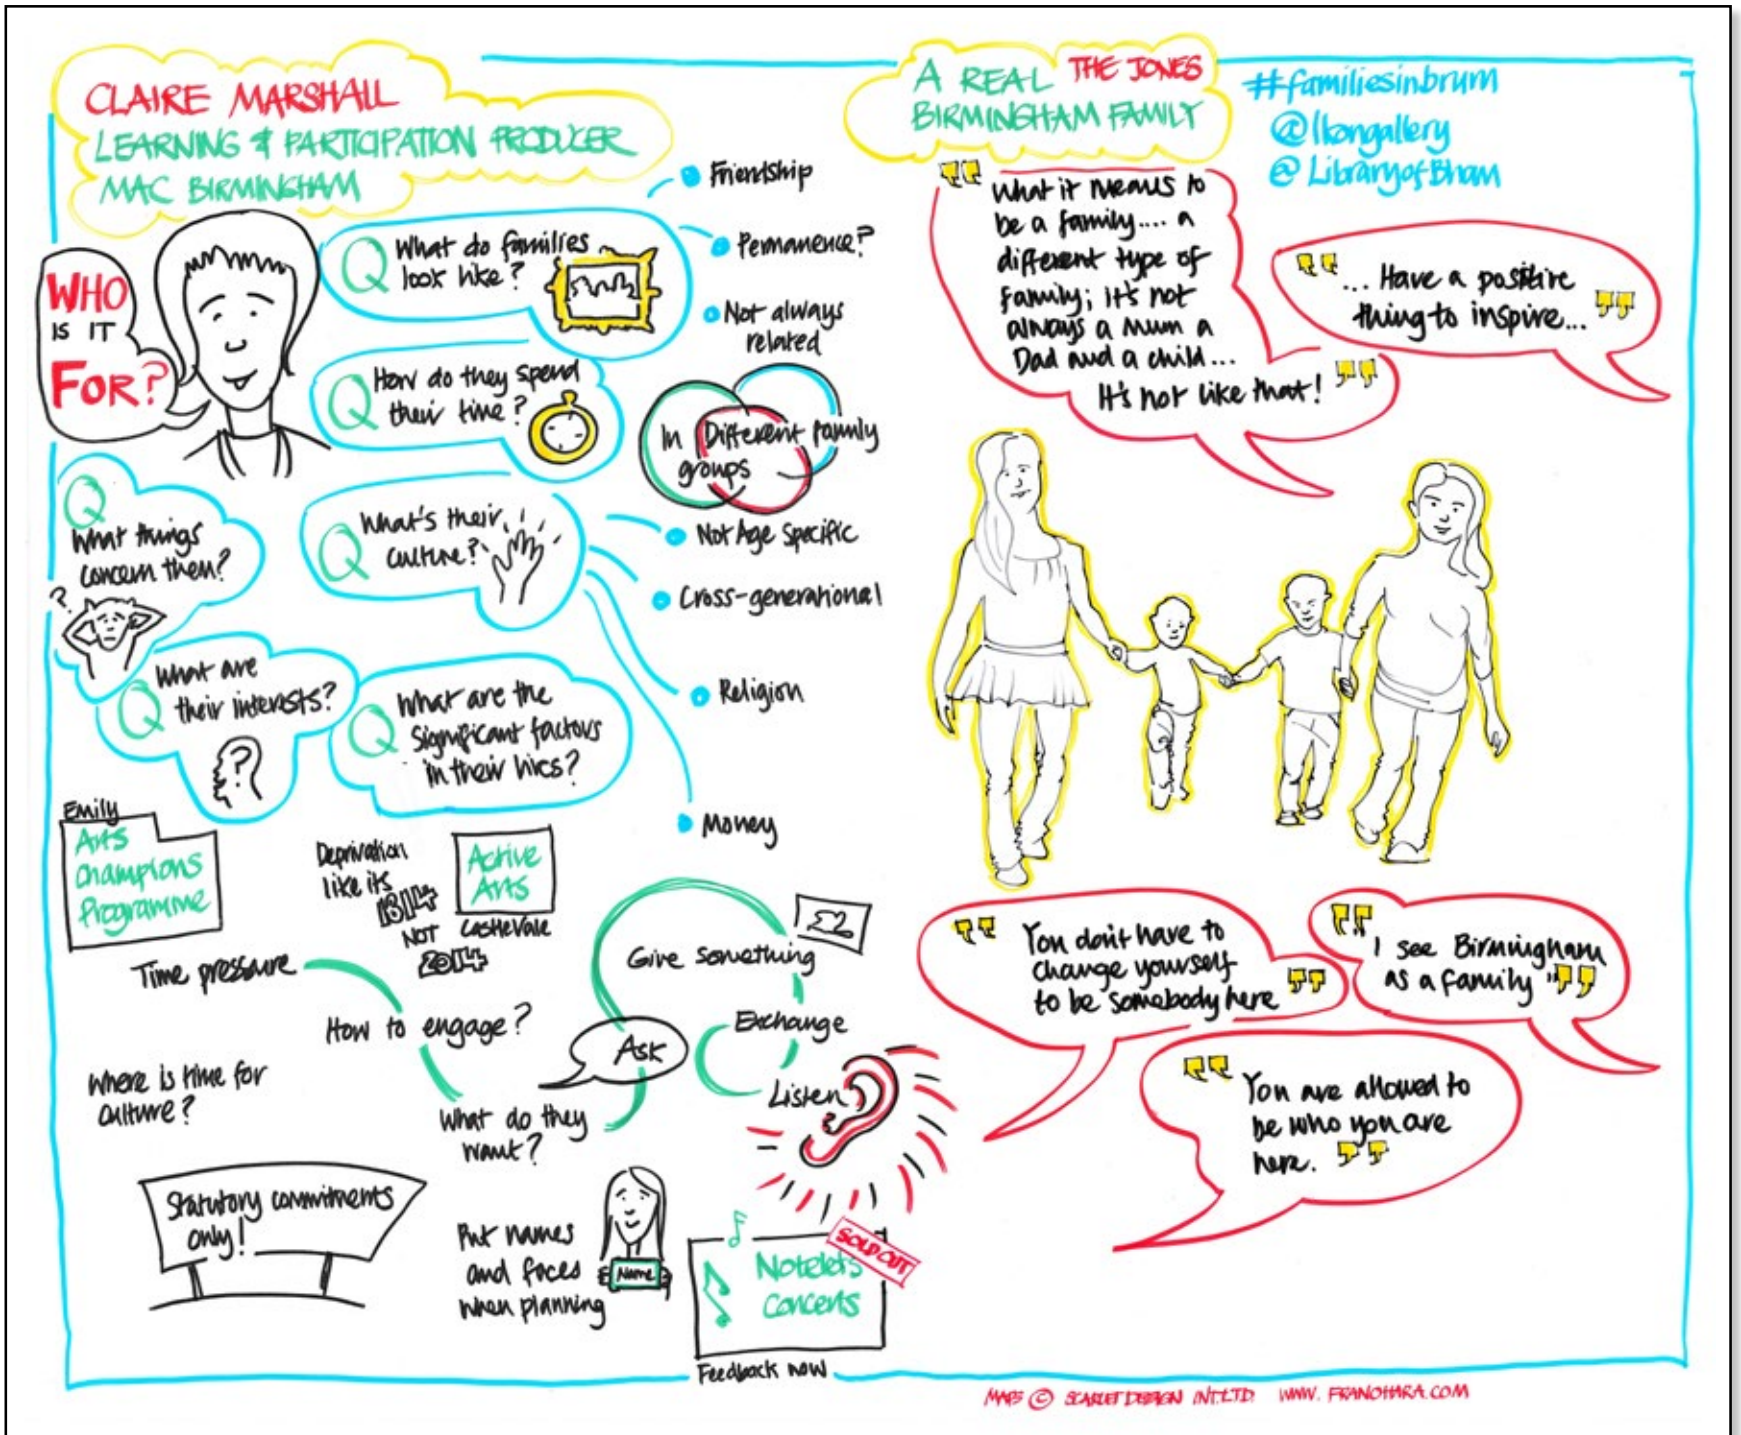 CLAIRE MARSHALL
LEARNING & PARTICIPATION PRODUCER
MAC BIRMINGHAM
WHO
IS IT
FOR?
Q What do families
look like?
Q How do they spend
their time?
Q What's their
culture?
Q
What things
concern them?
?
Q What are
their interests?
?
Q What are the
Significant factors
in their lives?
Friendship
Permanence?
Not always
related
In Different family
groups
Not Age Specific
Cross-generational
Religion
Money
Emily
Arts
Champions
Programme
Deprivation
like its
1814
NOT
2014
Active
Arts
Castle Vale
Time pressure
How to engage?
Where is time for
culture?
What do they
want?
Ask
Give something
£2
Exchange
Listen
Statutory commitments
only!
Put names
and faces
when planning
Name
SOLD OUT
Notelets
Concerts
Feedback now
A REAL THE JONES
BIRMINGHAM FAMILY
#familiesinbrum
@Ikongallery
@LibraryofBham
" What it means to
be a family.... a
different type of
family; it's not
always a Mum a
Dad and a child...
It's not like that! "
" ... Have a positive
thing to inspire... "
" You don't have to
change yourself
to be somebody here "
" I see Birmingham
as a family "
" You are allowed to
be who you are
here. "
MAPS © SCARLET DESIGN INT.LTD. WWW. FRANOHARA.COM